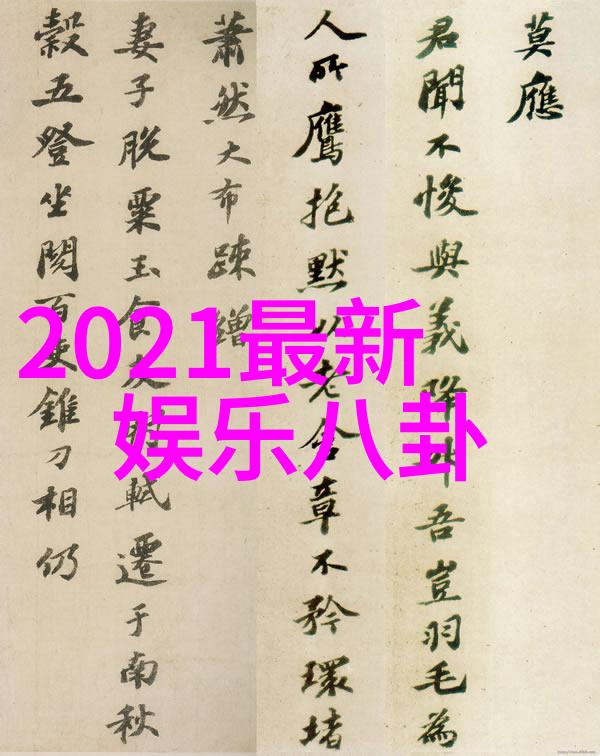 2021最新
娱乐八卦
莫應
君聞不悛與義降升吾豈羽毛為
人所鷹抱默以老含章不矜環堵
蕭然大布疎繒
妻子脫粟玉食友朋軾遷于南秋
穀五登坐閱百吏錐刀相仍